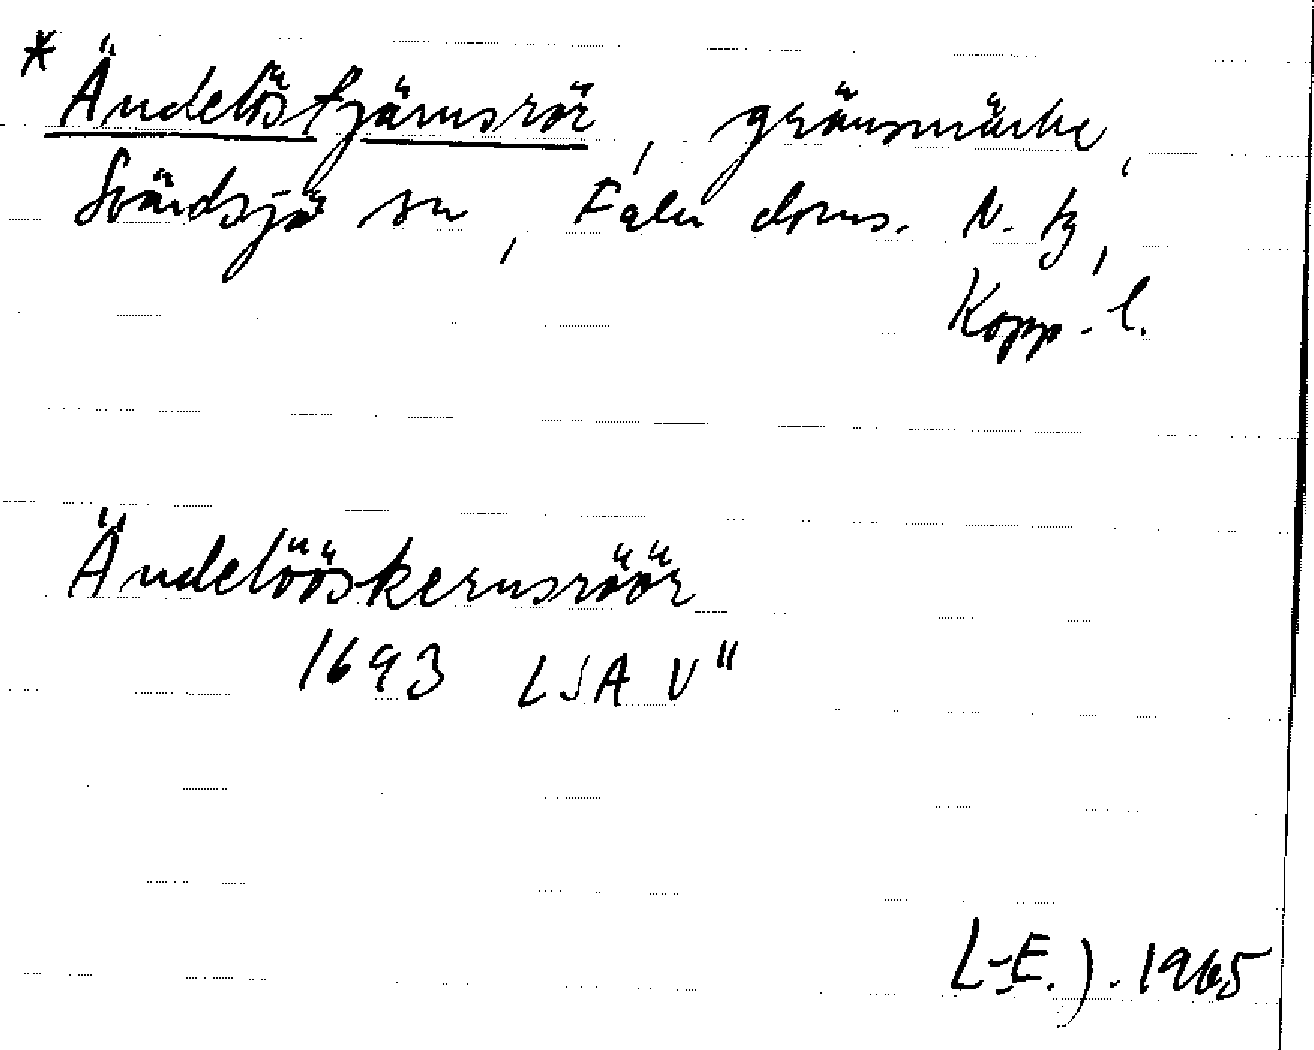 * Ändelöstjärnsrör, gränsmärke,
Svärdsjö sn, Falu doms. N. tg,
Kopp. l.
Ändelööskernsröör
1693 LSA V"
L-E. J. 1965